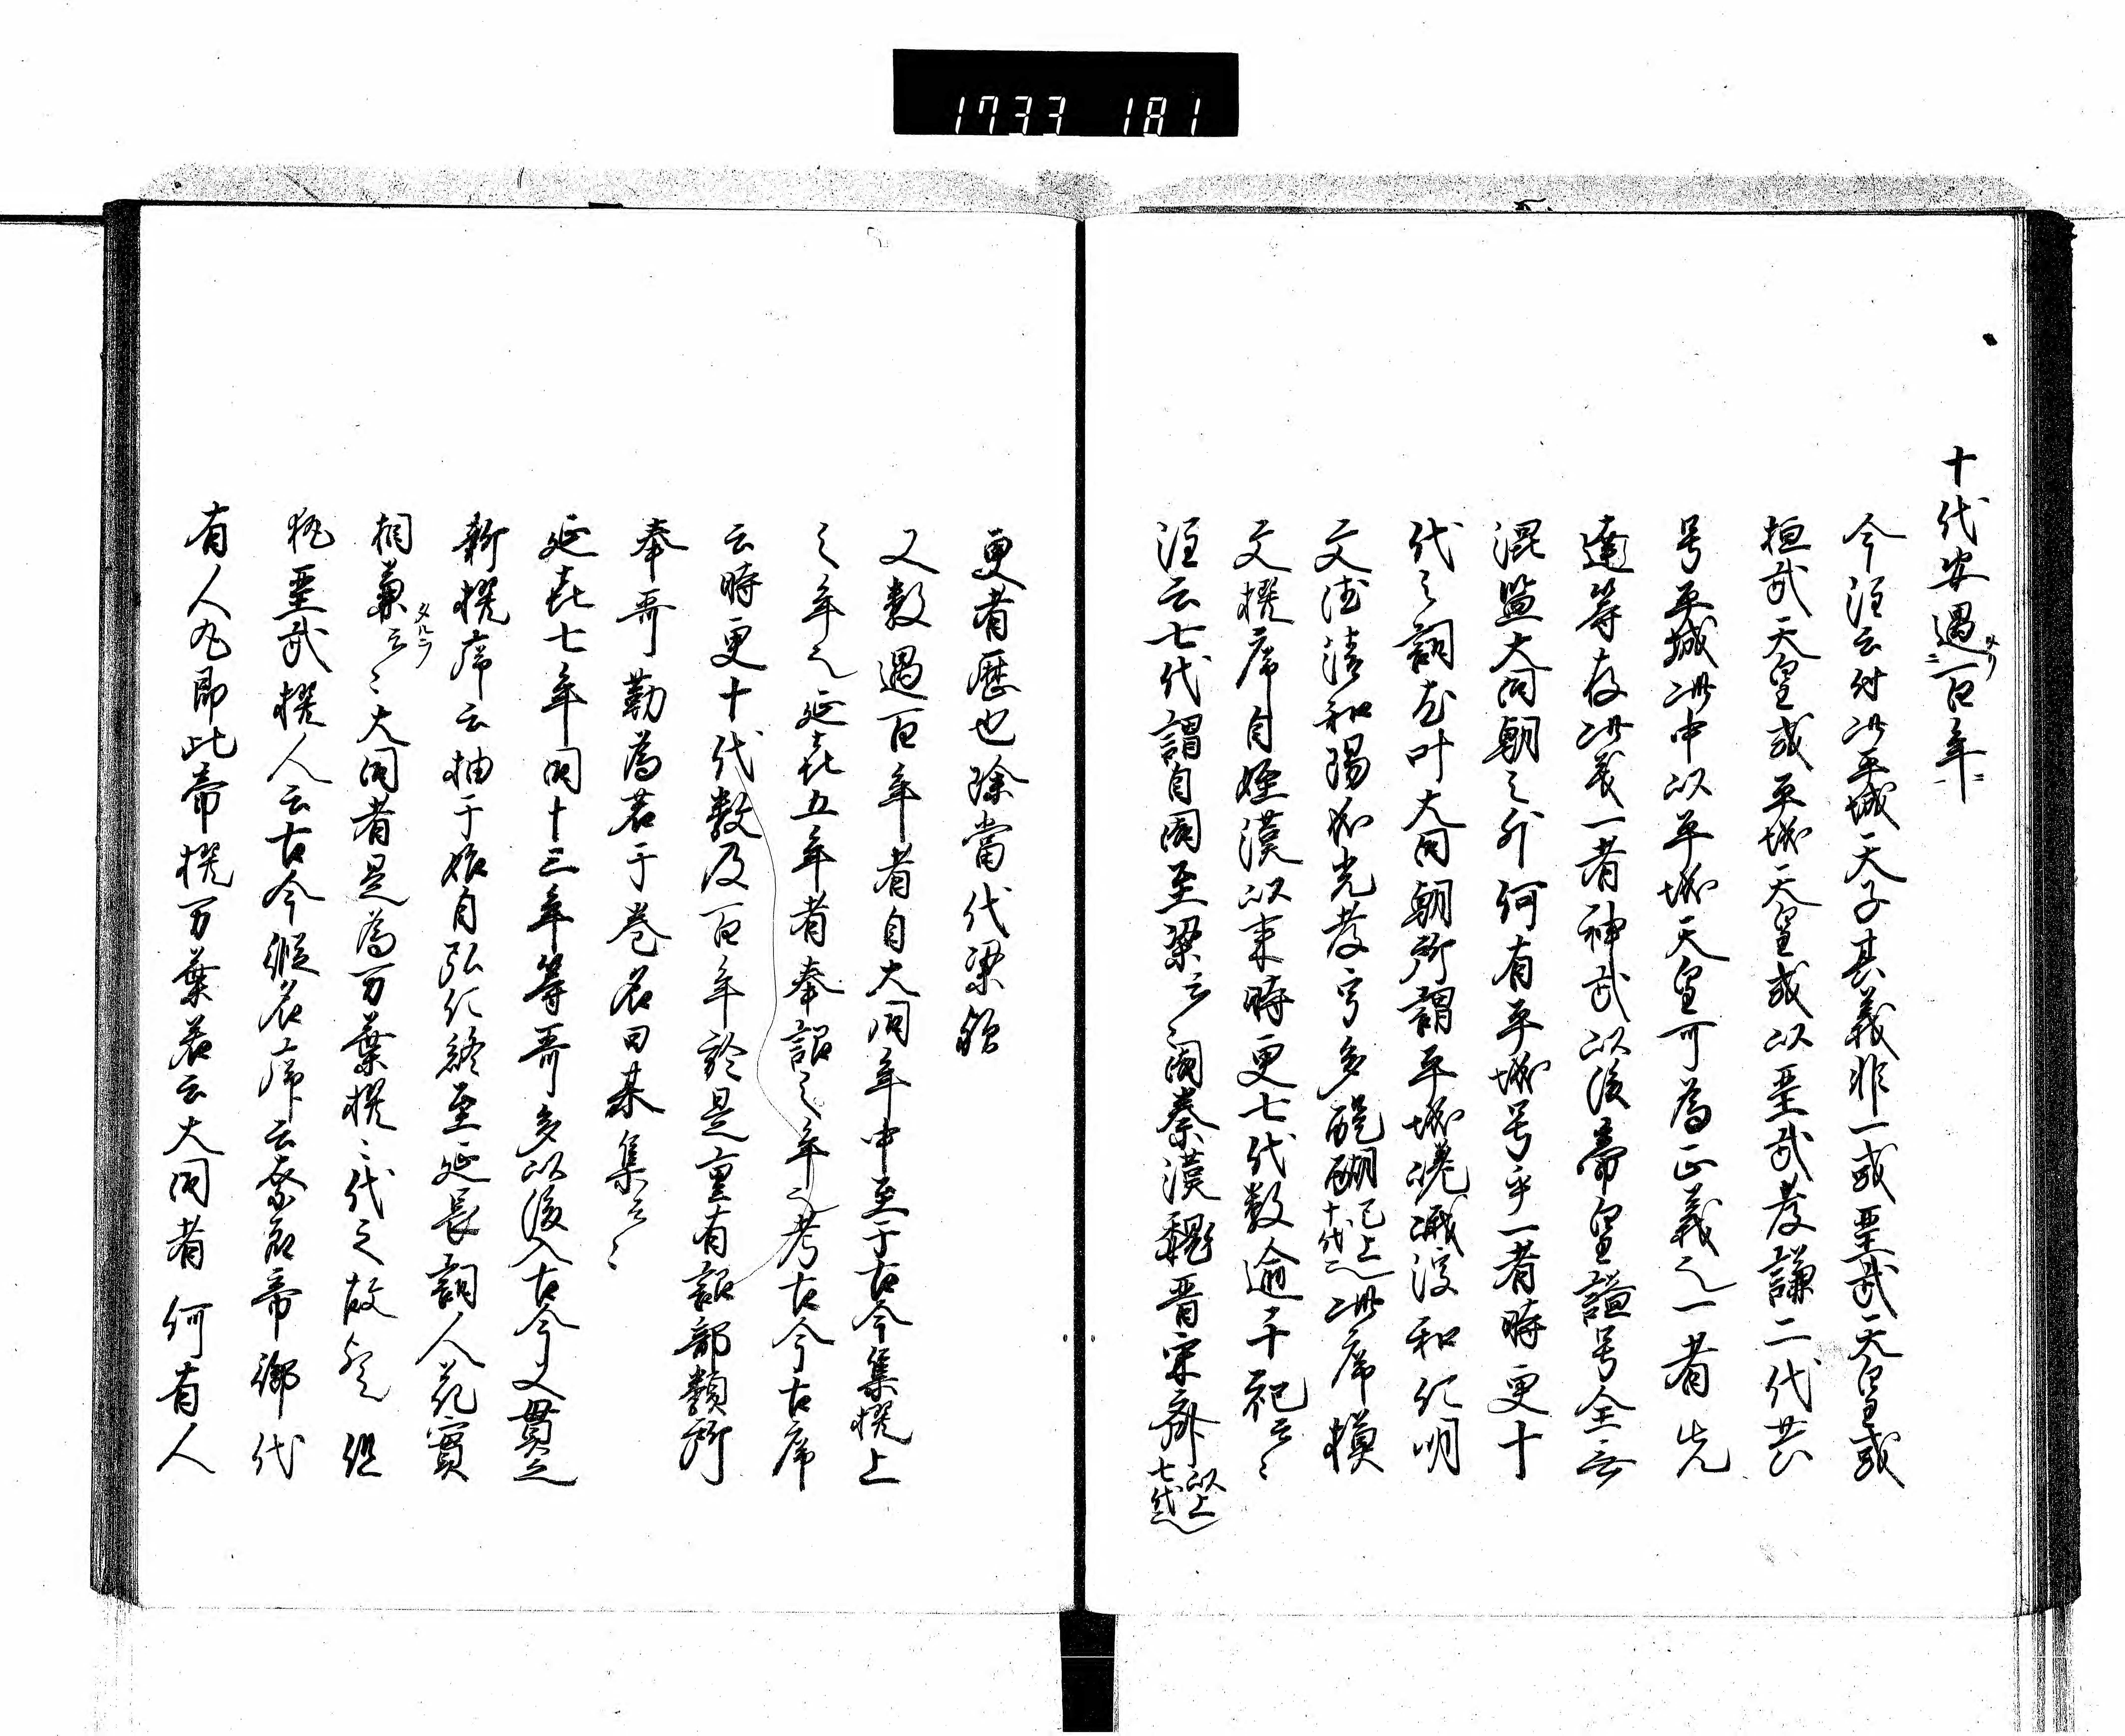 1733 181
十代安過百年
今注云付此平城天子其義非一或聖武天皇或
桓武天皇或平城天皇或以聖武孝謙二代共
号平城此中以平城天皇可為正義也一者先
達等存此義一者神武以後帝皇謚号全無
混監大同朝之外何有平城号乎一者時更十
代之詞尤叶大同朝所謂平城嵯峨淳和仁明
文徳清和陽成光孝宇多醍醐已上十代也此序模
文撰序自姫漢以来時更七代数逾千祀云々
注云七代謂自周至梁云々周秦漢魏晋宋斉以上七代也
更者歴也除當代梁
又数過百年者自大同年中至于古今集撰上
之年也延喜五年者奉詔之年也考古今古序
云時更十代数及百年於是重有詔部類所
奉哥勒為若于巻名曰某集云々
延喜七年同十三年等哥多以後入古今又貫之
新撰序云抽于始自弘仁終至延長詞人花實
相兼云々大同者是為万葉撰之代之故歟但
猶聖武撰人云古今假名序云奈良帝御代
有人丸即此帝撰万葉若云大同者何有人